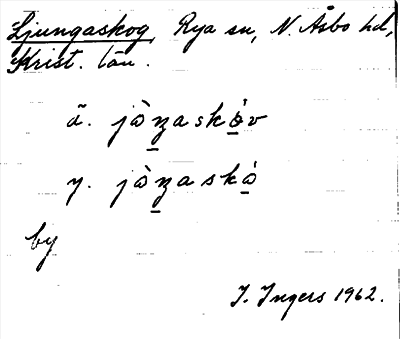 Ljungaskog, Rya sn, N. Åsbo hd,
Krist. län.
ä. jòŋaskòv
y. jòŋaskò
by
I. Ingers 1962.